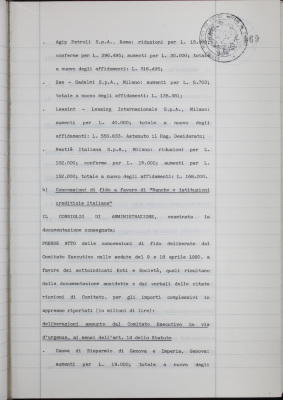 . Agip Petroli S.p.A., Roma: riduzioni per L. 15.000;
conferme per L. 296.495; aumenti per L. 20.000; totale
a nuovo degli affidamenti: L. 316.495;
. Gadolni S.p.A., Milano: aumenti per L. 5.703;
totale a nuovo degli affidamenti: L. 135.551;
. Leasint - Leasing Internazionale S.p.A., Milano:
aumenti per L. 40.000; totale a nuovo degli
affidamenti: L. 550.633. Astenuto il Rag. Desiderato;
. Nestlè Italiana S.p.A., Milano: riduzioni per L.
152.000; conferme per L. 16.000; aumenti per L.
152.000; totale a nuovo degli affidamenti: L. 168.000.
b) Concessioni di fido a favore di "Banche e istituzioni
creditizie italiane"
IL CONSIGLIO DI AMMINISTRAZIONE, esaminata la
documentazione consegnata;
PRENDE ATTO delle concessioni di fido deliberate dal
Comitato Esecutivo nelle sedute del 9 e 18 aprile 1990, a
favore dei sottoindicati Enti e Società, quali risultano
dalla documentazione suddetta e dai verbali delle citate
riunioni di Comitato, per gli importi complessivi in
appresso riportati (in milioni di lire):
deliberazioni assunte dal Comitato Esecutivo in via
d'urgenza, ai sensi dell'art. 18 dello Statuto
. Cassa di Risparmio di Genova e Imperia, Genova:
aumenti per L. 18.000; totale a nuovo degli